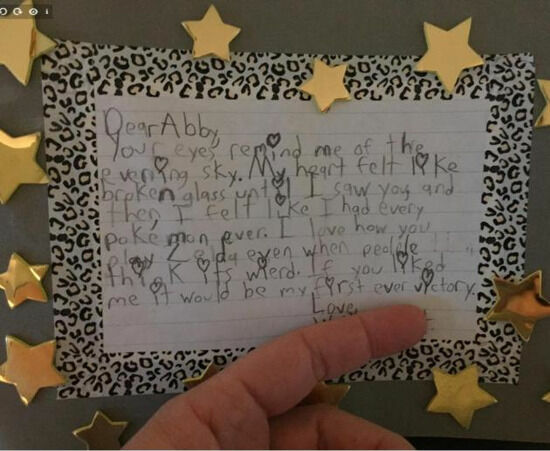 Dear Abby,
Your eyes remind me of the
evening sky. My heart felt like
broken glass until I saw you and
then I felt like I had every
pokémon ever. I love how you
play Zelda even when people
think its wierd. If you liked
me it would be my first ever victory.
Love,